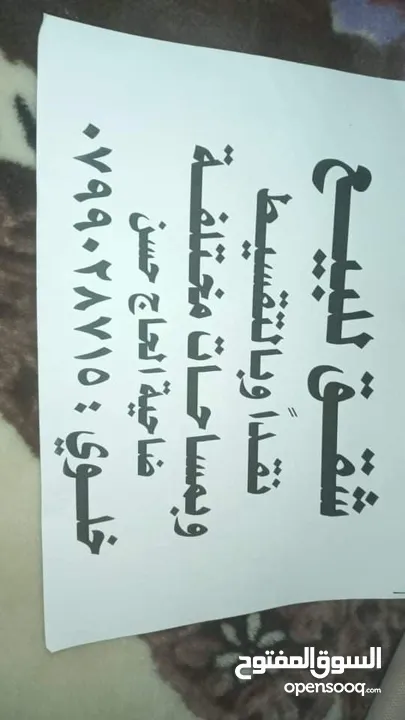 شقق للبيع
نقداً وبالتقسيط
وبمساحات مختلفة
ضاحية الحاج حسن
خلوي : ٠٧٩٩٠٢٨٧١٥
السوق المفتوح
opensooq.com